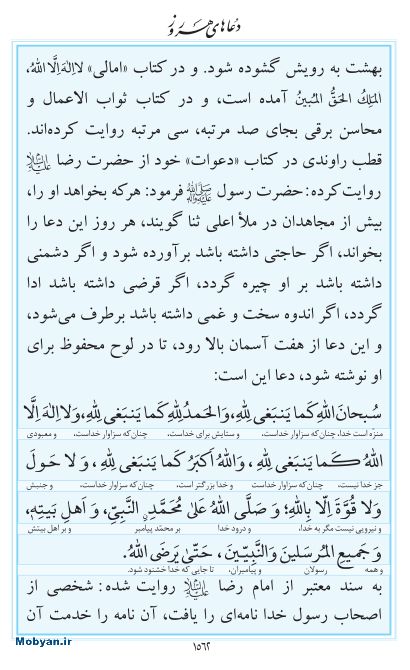 دعاهای هر روز
بهشت به رویش گشوده شود. و در کتاب «امالی» لااِلهَ اِلَّا اللهُ،
المَلِكُ الحَقُّ المُبینُ آمده است، و در کتاب ثواب الاعمال و
محاسن برقی بجای صد مرتبه، سی مرتبه روایت کرده‌اند.
قطب راوندی در کتاب «دعوات» خود از حضرت رضا علیه‌السلام
روایت کرده: حضرت رسول ﷺ فرمود: هرکه بخواهد او را،
بیش از مجاهدان در ملأ اعلی ثنا گویند، هر روز این دعا را
بخواند، اگر حاجتی داشته باشد برآورده شود و اگر دشمنی
داشته باشد بر او چیره گردد، اگر قرضی داشته باشد ادا
گردد، اگر اندوه سخت و غمی داشته باشد برطرف می‌شود،
و این دعا از هفت آسمان بالا رود، تا در لوح محفوظ برای
او نوشته شود، دعا این است:
سُبحانَ اللهِ كَما یَنبَغی لِلّهِ، وَالحَمدُ لِلّهِ كَما یَنبَغی لِلّهِ، وَلااِلهَ اِلَّا
منزّه است خدا، چنان‌که سزاوار خداست، و ستایش برای خداست، چنان‌که سزاوار خداست، و معبودی
اللهُ كَما یَنبَغی لِلّهِ، وَاللهُ اَكبَرُ كَما یَنبَغی لِلّهِ، وَلا حَولَ
جز خدا نیست، چنان‌که سزاوار خداست و خدا بزرگتر است، چنان‌که سزاوار خداست، و جنبش
وَلا قُوَّةَ اِلّا بِاللهِ؛ وَ صَلَّی اللهُ عَلی مُحَمَّدٍ النَّبِیِّ، وَ اَهلِ بَیتِهِ،
و نیرویی نیست مگر به خدا، و درود خدا بر محمّد پیامبر و بر اهل بیتش
وَ جَمیعِ المُرسَلینَ وَالنَّبِیّینَ، حَتّی یَرضَی اللهُ.
و همه رسولان و پیامبران، تا جایی که خدا خشنود شود.
به سند معتبر از امام رضا علیه‌السلام روایت شده: شخصی از
اصحاب رسول خدا نامه‌ای را یافت، آن نامه را خدمت آن
Mobyan.ir
۱۵۶۲